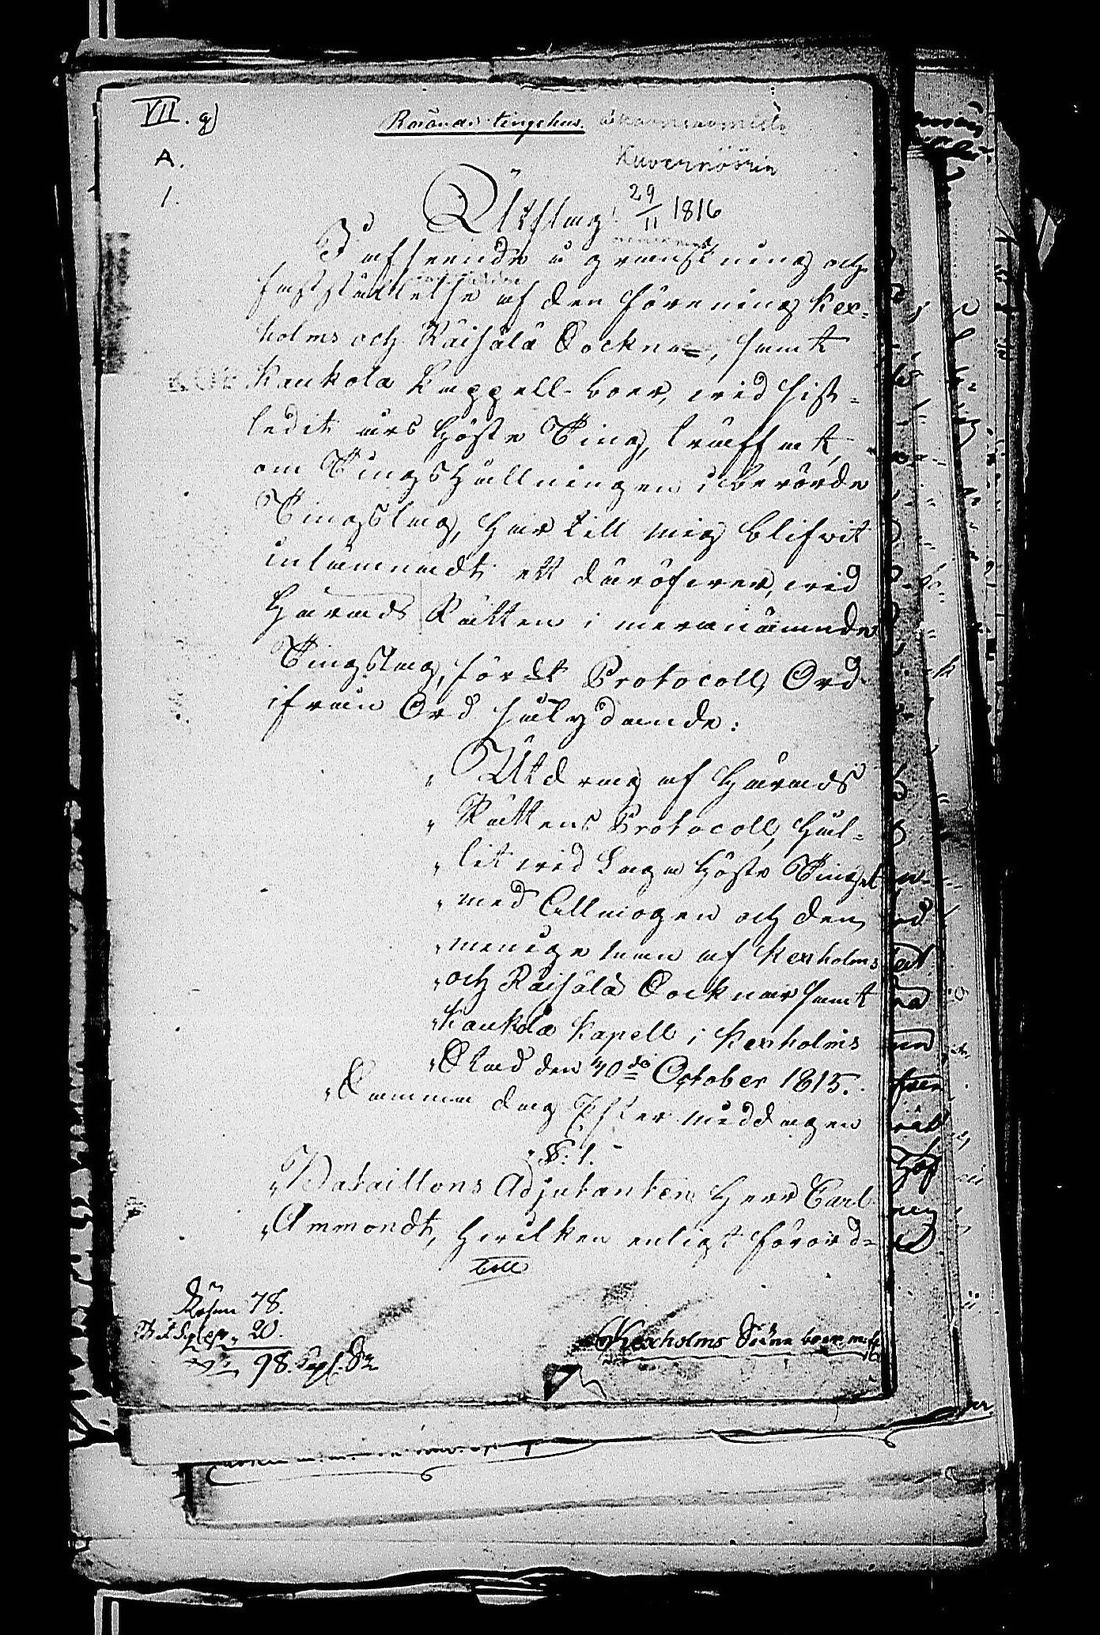 VII. g)
A.
1.
Räisälä tingshus.
Kuvernöörin
29/11 1816
Utslag
I afseende å granskning och
fastställelse af den förening Kex-
holms och Räisälä Socknar, samt
Kaukola Kappell-boer, wid sist-
ledit års Höste Ting, träffat,
om Tingshållningen i berörde
Tingslag, har till mig blifwit
inlämnadt ett däröfwer, wid
Härads Rätten i meranämnde
Tingslag, fördt Protocoll, Ord
ifrån Ord sålydande:
"Utdrag af Härads
"Rättens Protocoll, hål-
"lit wid Laga Höste Tinget
"med Allmogen och den
"menige man af Kexholms
"och Räisälä Socknar samt
"Kaukola Kapell i Kexholms
"Stad den 10de October 1815.
"Samma dag Efter middagen
"§. 1.
"Bataillons Adjutanten Herr Carl
"Ammondt, hwilken enligt förord-
Lösen 78.
20.
98. Kop. Sr
Kexholms Sockne boer